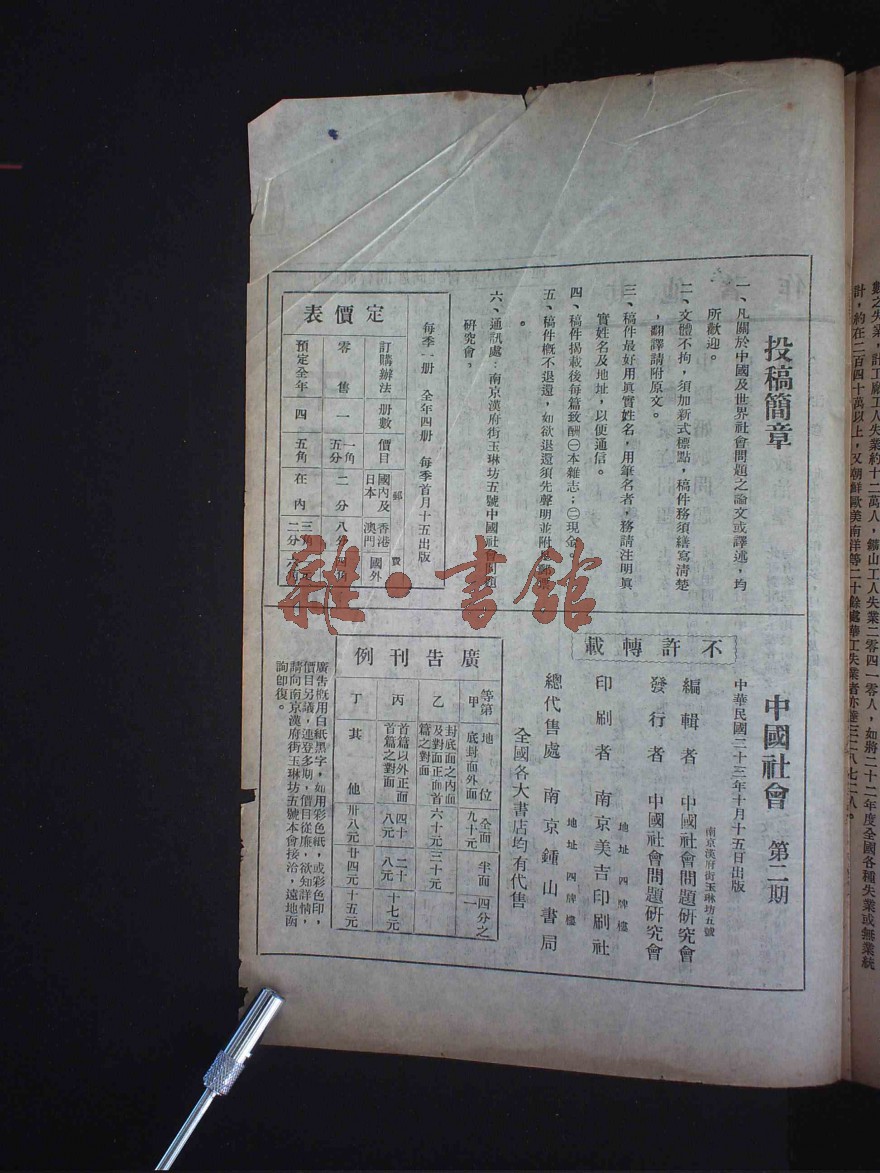 數之失業，計工廠工人失業約十二萬人，鑛山工人失業二零四一零人，如將二十二年度全國各種失業或無業統
計，約在二百四十萬以上，又朝鮮歐美南洋等二十餘處華工失業者亦達三二八七二人。
投稿簡章
一、凡關於中國及世界社會問題之論文或譯述，均
所歡迎。
二、文體不拘，須加新式標點，稿件務須繕寫清楚
，翻譯請附原文。
三、稿件最好用眞實姓名，用筆名者，務請注明眞
實姓名及地址，以便通信。
四、稿件揭載後每篇致酬㊀本雜志；㊁現金。
五、稿件槪不退還，如欲退還須先聲明並附足郵票
。
六、通訊處：南京漢府街玉琳坊五號中國社會問題
硏究會。
每季一册　全年四册　每季首月十五出版
定價表
訂購辦法　册數　價目　郵費　國內及日本　香港澳門　國外
零售　一　一角五分　二分　八分　四角
預定全年　四　五角　在內　三角二分
中國社會　第二期
中華民國二十三年十月十五日出版
不許轉載
南京漢府街玉琳坊五號
編輯者　中國社會問題研究會
發行者　中國社會問題研究會
地址　四牌樓
印刷者　南京美吉印刷社
地址　四牌樓
總代售處　南京鍾山書局
全國各大書店均有代售
廣告刊例
等第　地位　全面　半面　四分之一
甲　底封面外面　九十元
乙　封底面之內面及對面正面首篇之對面　六十元　三十元
丙　首篇以外正面首篇之對面　四十八元　二十八元　十七元
丁　其他　卅八元　廿四元　十五元
廣告槪用白紙黑字，如用彩色紙，或彩色印，
價目另議，連登多期，價目從廉，欲知詳情，
請向南京漢府街玉琳坊五號本會接洽，遠地函
詢卽復。
雜·書館